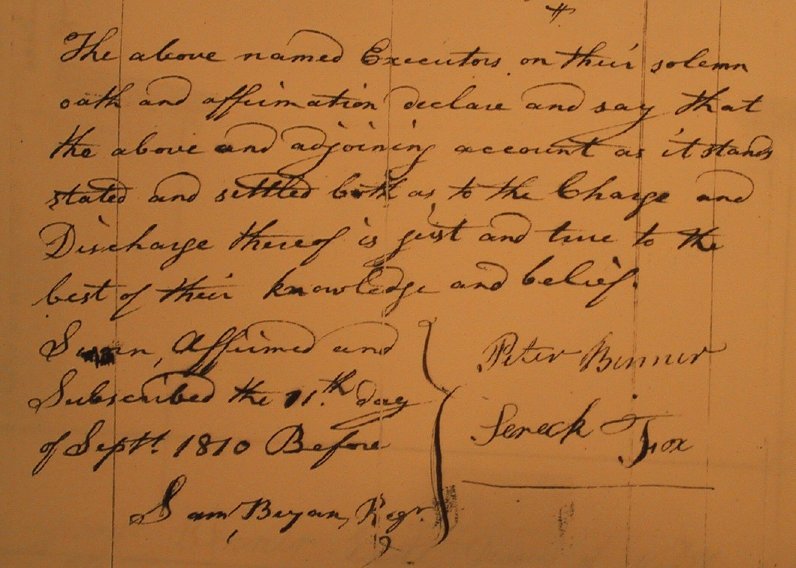 The above named Executors on their solemn
oath and affirmation declare and say that
the above and adjoining account as it stands
stated and settled both as to the Charge and
Discharge thereof is just and true to the
best of their knowledge and belief.
Sworn, Affirmed and
Subscribed the 11th. day
of Sept. 1810 Before
Saml. Bryan, Regr.
Peter Benner
Sereck Fox